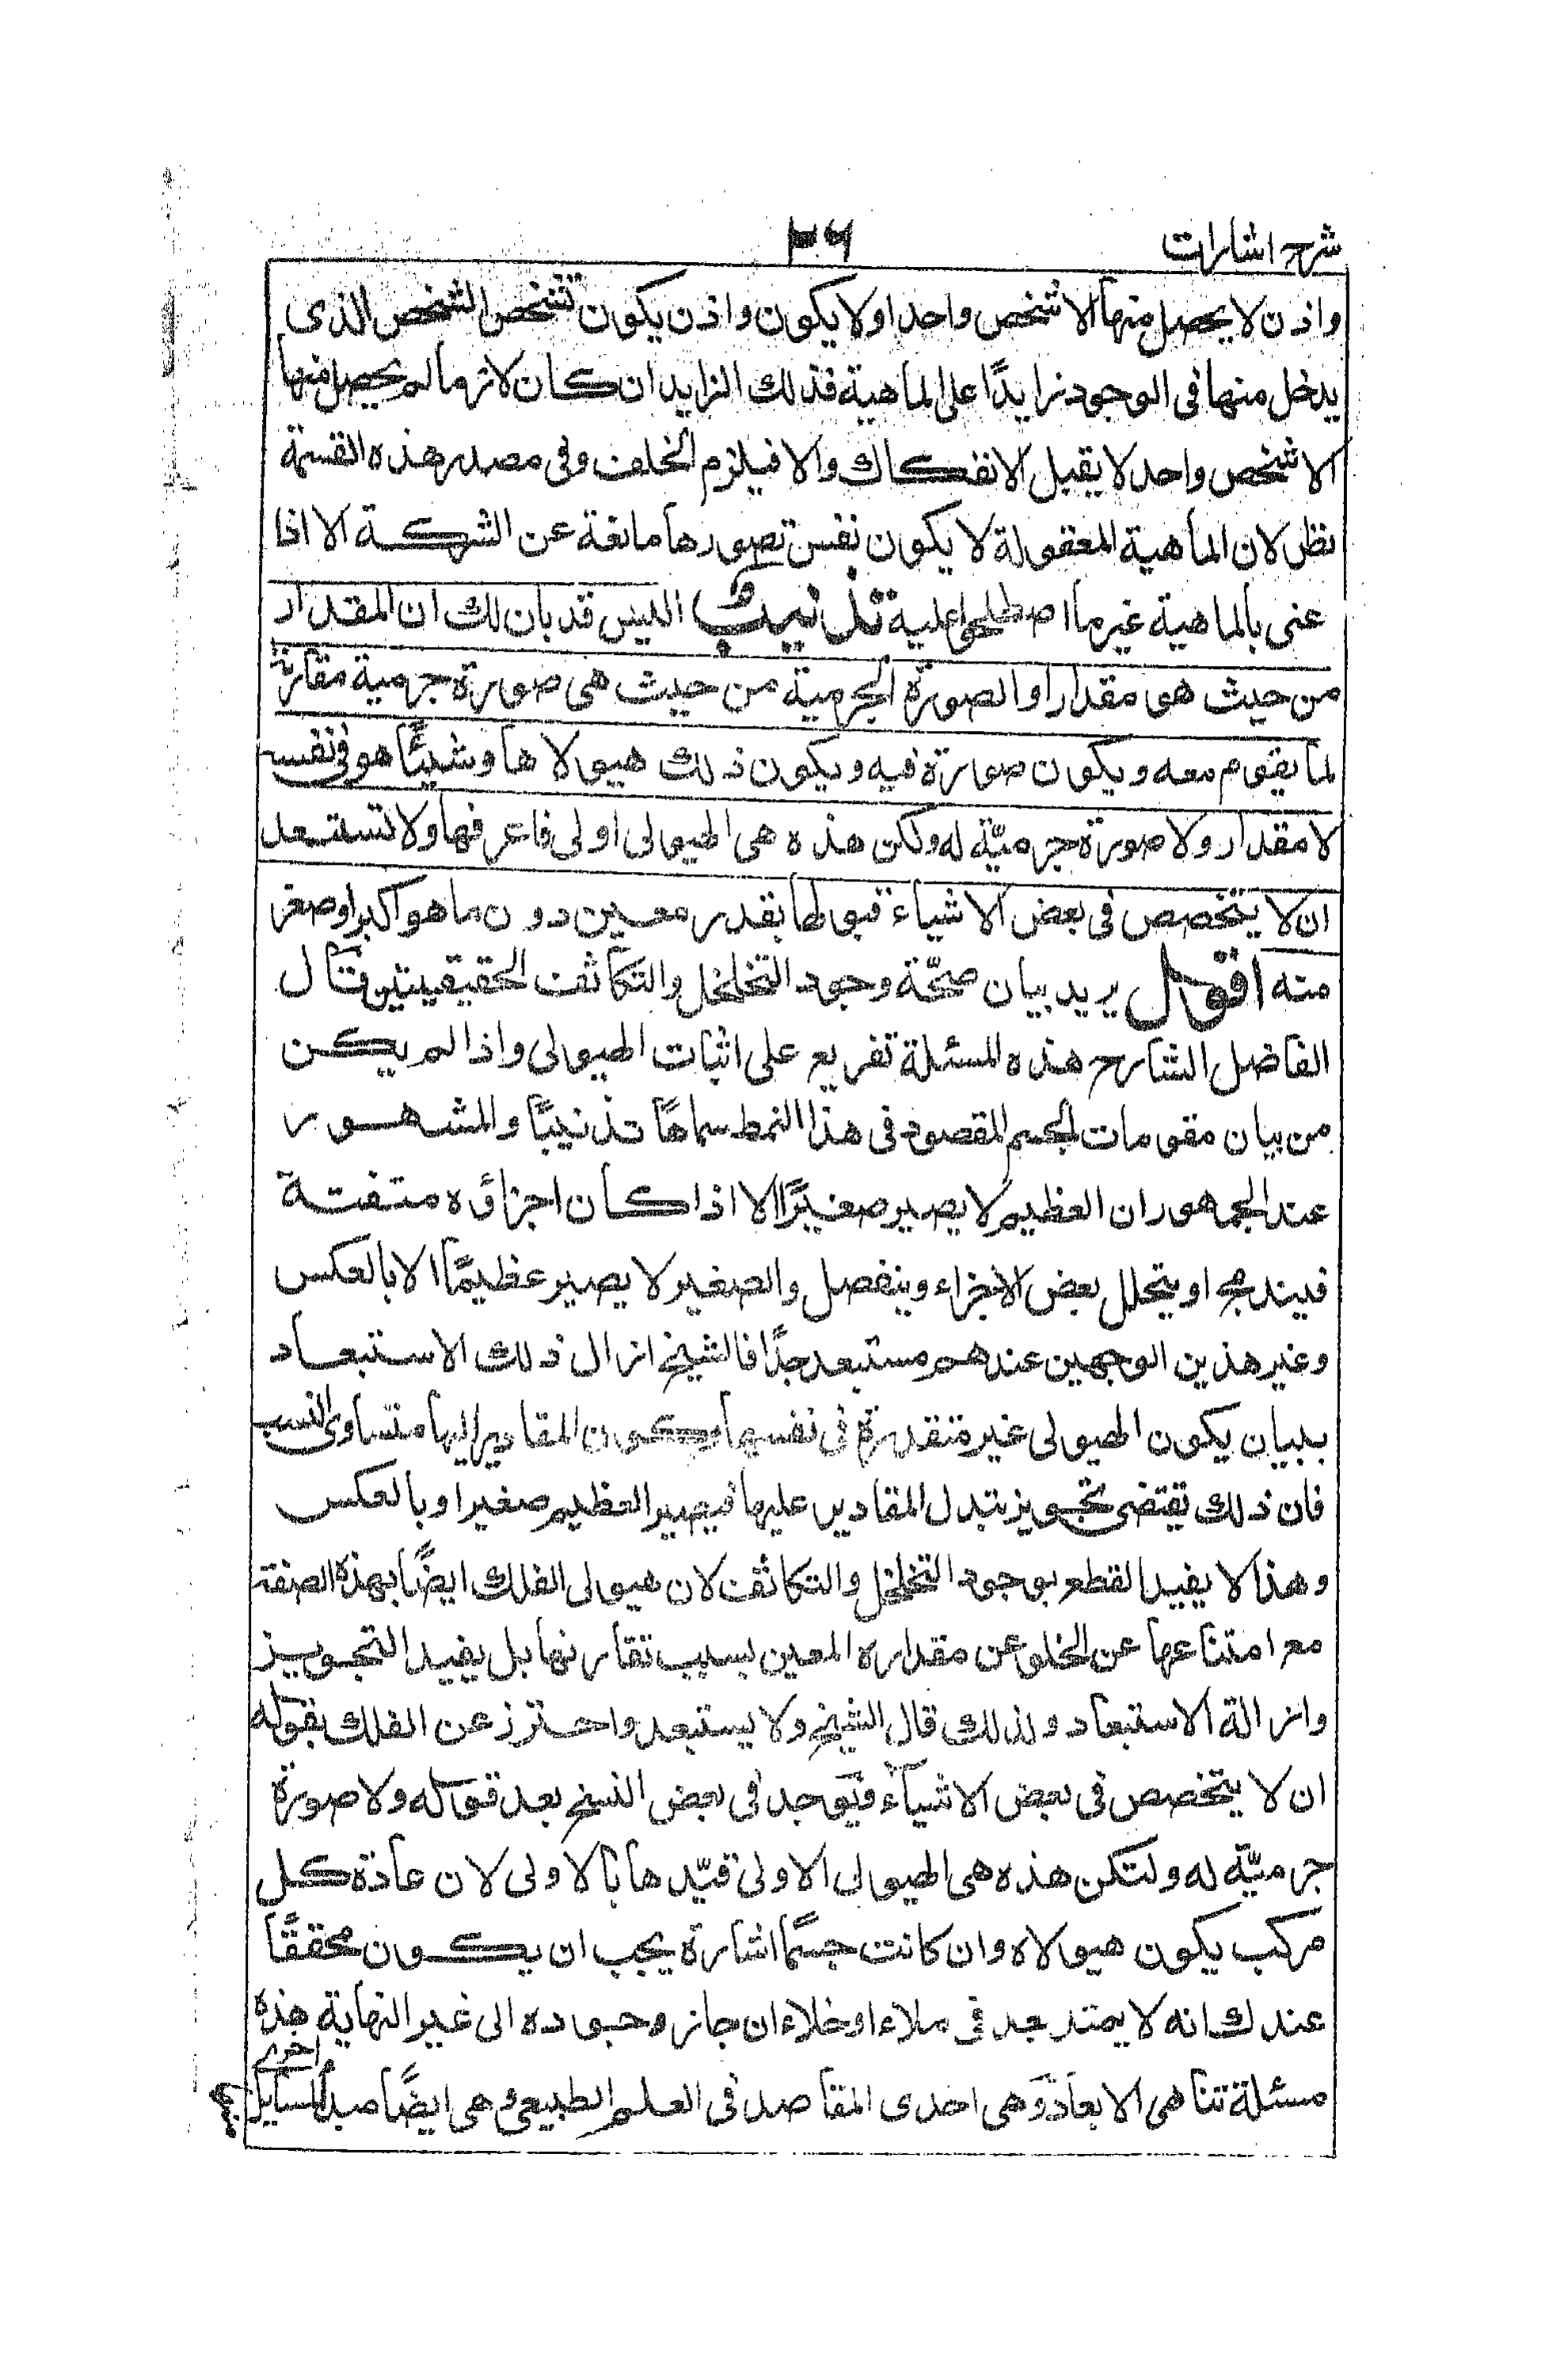 شرح اشارات
٢٦
واذن لا يحصل منها الا شخص واحد او لا يكون واذن يكون تشخص الشخص الذى
يدخل منها فى الوجود زايدًا على الماهية فذلك الزايد ان كان لازما لم يحصل منها
الا شخص واحد لا يقبل الانفكاك والا فيلزم الخلف وفى مصدر هذه القسمة
نظر لان الماهية المعقولة لا يكون نفس تصورها مانعة عن الشركة الا اذا
عنى بالماهية غير ما اصطلحوا عليه تذنيب اليس قد بان لك ان المقدار
من حيث هو مقدار او الصورة الجرمية من حيث هى صورة جرمية مقارنة
لما يقوم معه ويكون صورة فيه ويكون ذلك هيولاها وشيئًا هو فى نفسه
لا مقدار ولا صورة جرميّة له ولكن هذه هى الهيولى اولى فاعرفها ولا تستبعد
ان لا يتخصص فى بعض الاشياء قبولها بقدر معين دون ما هو اكبر او صغر
منه اقول يريد بيان صحّة وجود التخلخل والتكاثف الحقيقيين قال
الفاضل الشارح هذه المسئلة تفريع على اثبات الهيولى واذا لم يكن
من بيان مقومات الجسم المقصود فى هذا النمط سماها تذنيبًا والمشهور
عند الجمهور ان العظيم لا يصير صغيرًا الا اذا كان اجزاؤه متفتة
فيندمج او يتحلل بعض الاجزاء وينفصل والصغير لا يصير عظيمًا الا بالعكس
وغير هذين الوجهين عندهم مستبعد جدًّا فالشيخ ازال ذلك الاستبعاد
ببيان يكون الهيولى غير متقدرة فى نفسها وبكون المقادير اليها متساوى النسب
فان ذلك يقتضى تجويز تبدل المقادير عليها فيصير العظيم صغيرا وبالعكس
وهذا لا يفيد القطع بوجود التخلخل والتكاثف لان هيولى الفلك ايضًا بهذه الصفة
مع امتناعها عن الخلو عن مقداره المعين بسبب تقارنها بل يفيد التجويز
وازالة الاستبعاد ولذلك قال الشيخ ولا يستبعد واحترز عن الفلك بقوله
ان لا يتخصص فى بعض الاشياء فيوجد فى بعض النسخ بعد قوله ولا صورة
جرميّة له ولتكن هذه هى الهيولى الاولى قيّدها بالاولى لان عادة كل
مركب يكون هيولاه وان كانت جسمًا اشارة يجب ان يكون محققًا
عندك انه لا يمتد بعد فى ملاء او خلاء ان جاز وجوده الى غير النهاية هذه
مسئلة تناهى الابعاد وهى احدى المقاصد فى العلم الطبيعى وهى ايضًا مبدأ لمسايل
اخرى